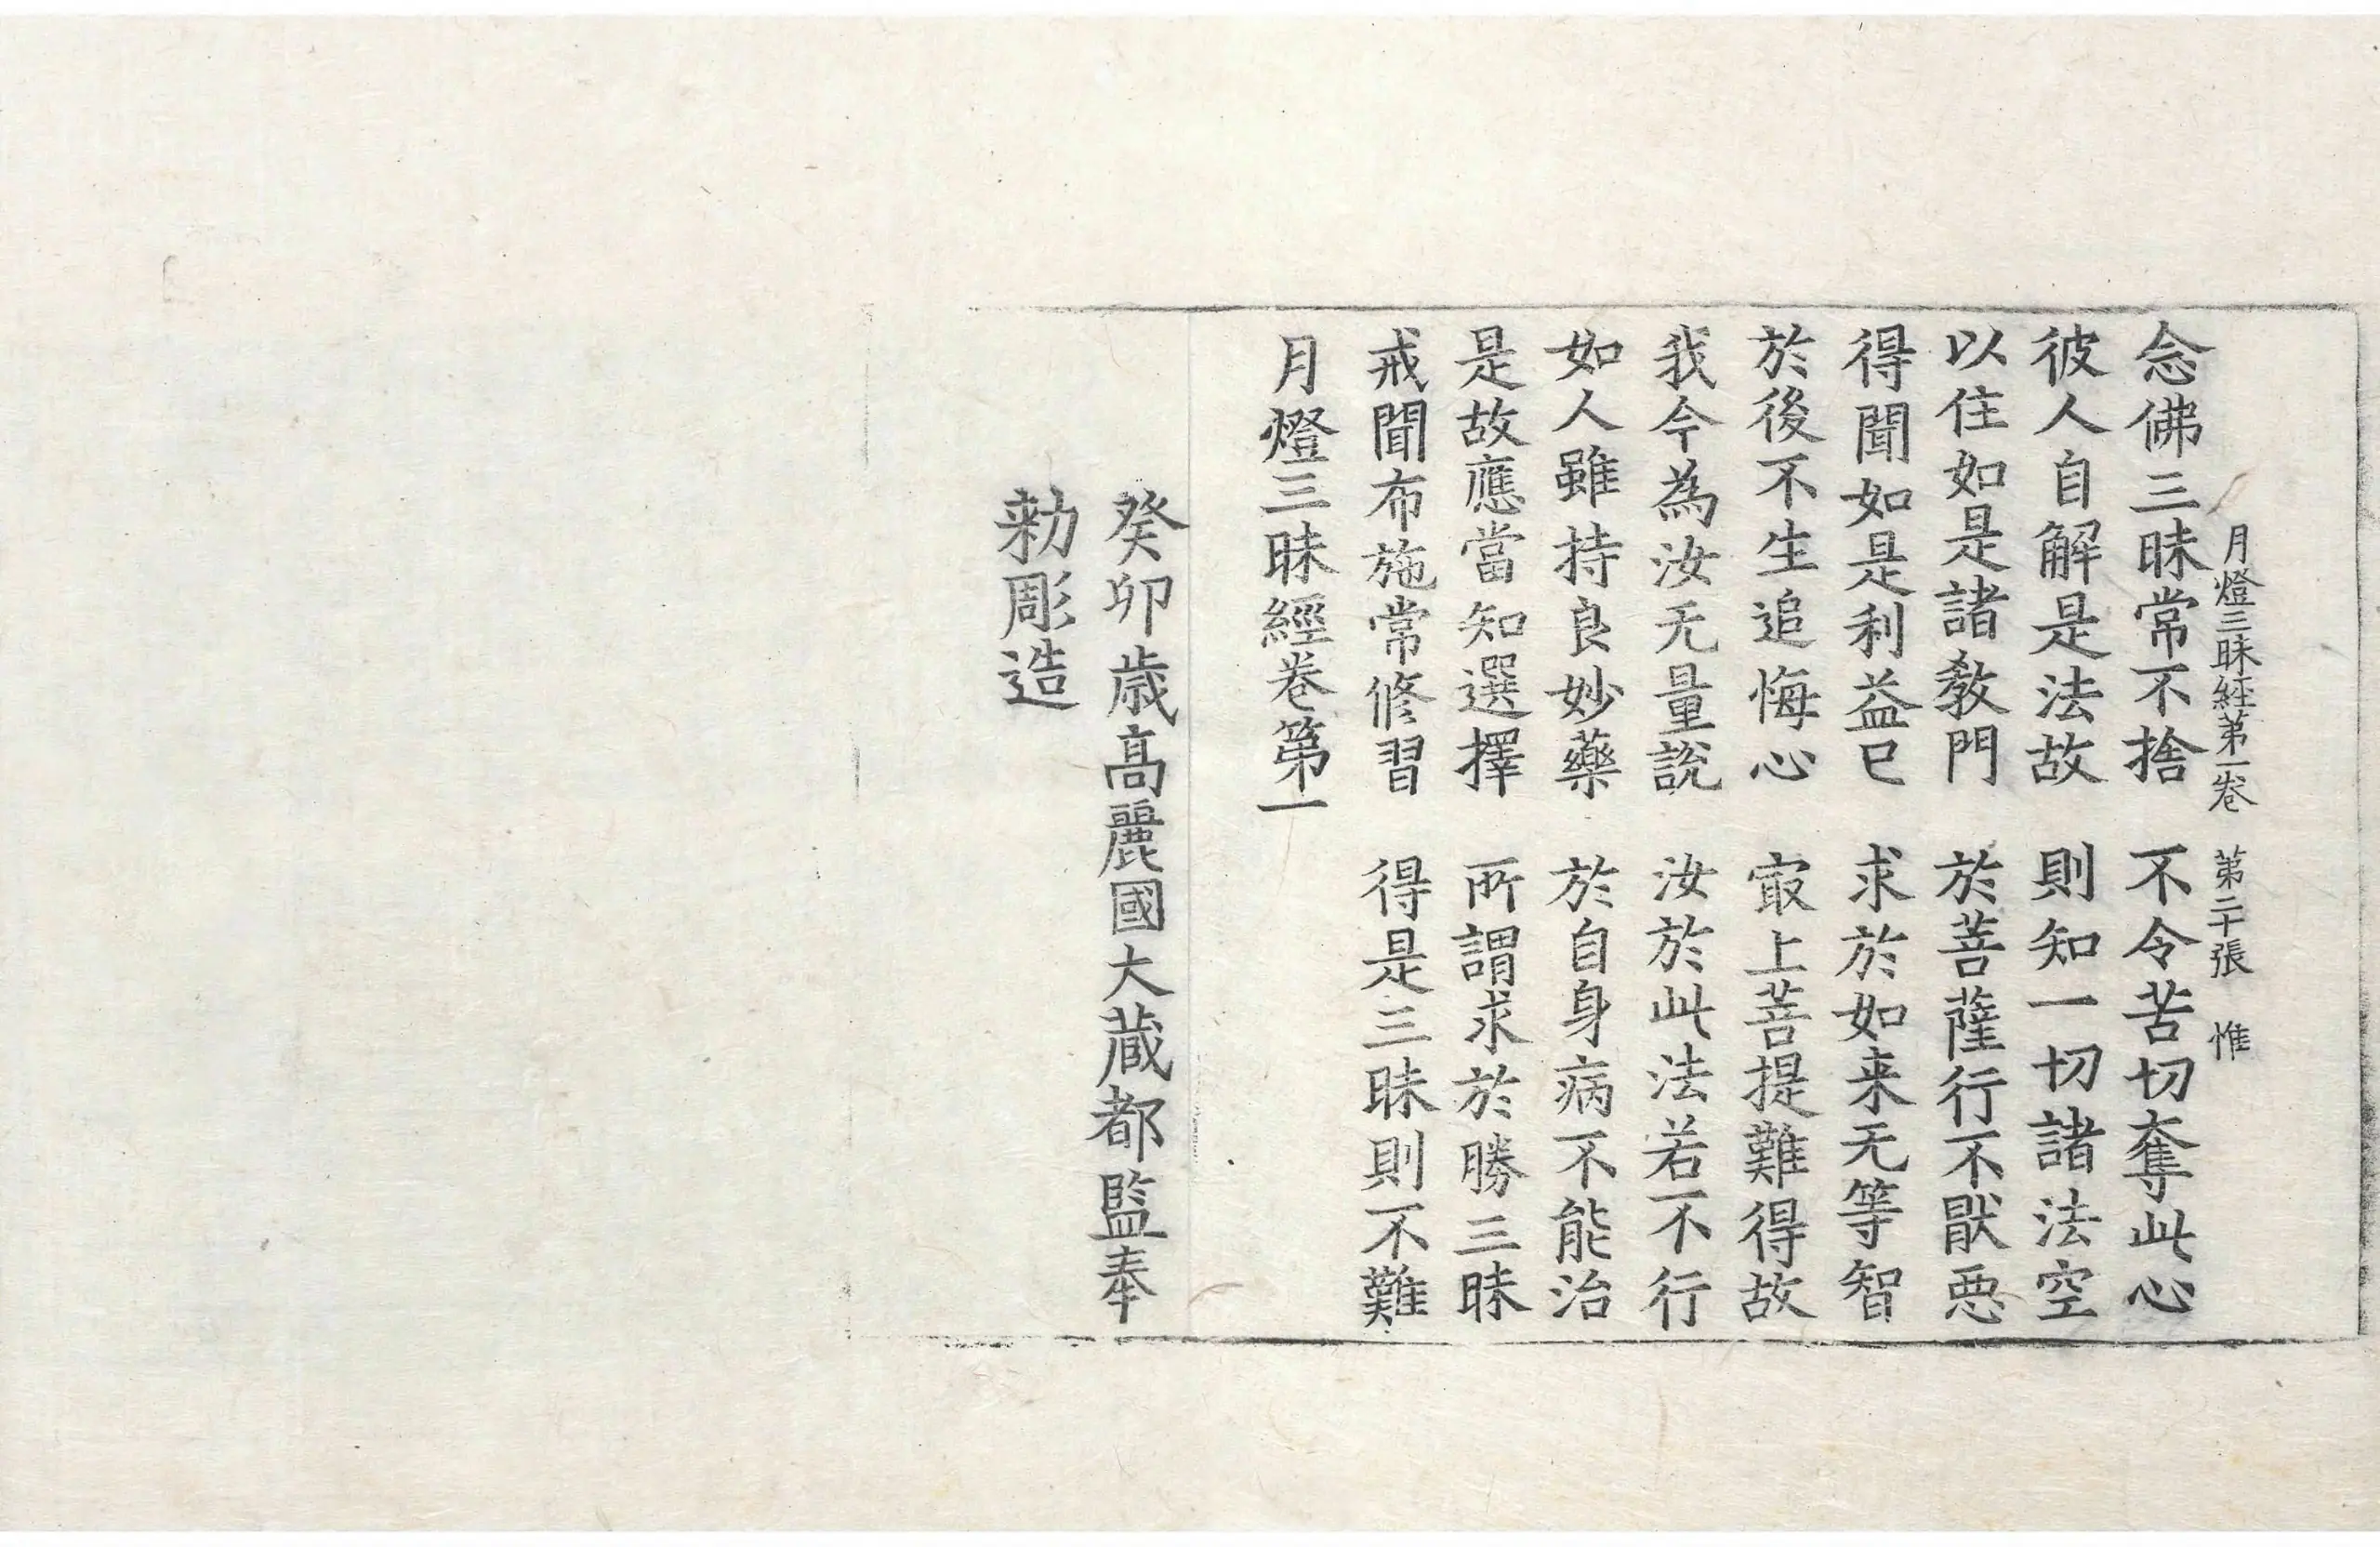 月燈三昧経第一卷 第二十張 惟
念佛三昧常不捨 不令苦切奪此心
彼人自解是法故 則知一切諸法空
以住如是諸教門 於菩薩行不猒惡
得聞如是利益已 求於如来无等智
於後不生追悔心 㝡上菩提難得故
我今為汝无量說 汝於此法若不行
如人雖持良妙藥 於自身病不能治
是故應當知選擇 所謂求於勝三昧
戒聞布施常修習 得是三昧則不難
月燈三昧經卷第一
癸卯歳髙麗國大藏都監奉
勑彫造